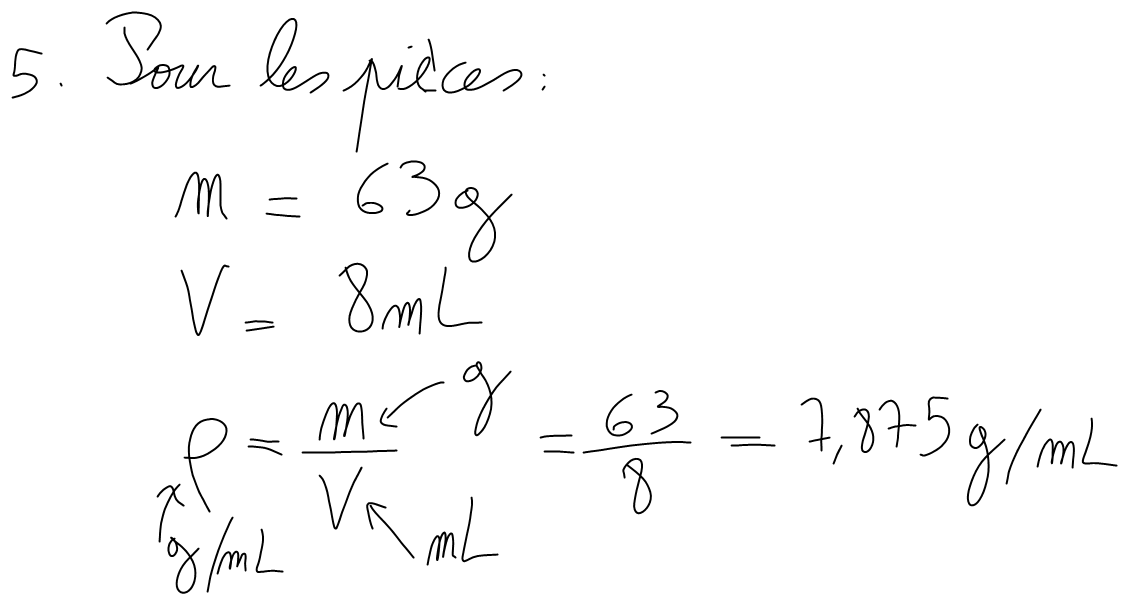 5. Pour les pièces :
m = 63 g
V = 8 mL
ρ = m / V = 63 / 8 = 7,875 g/mL
g
g/mL
mL